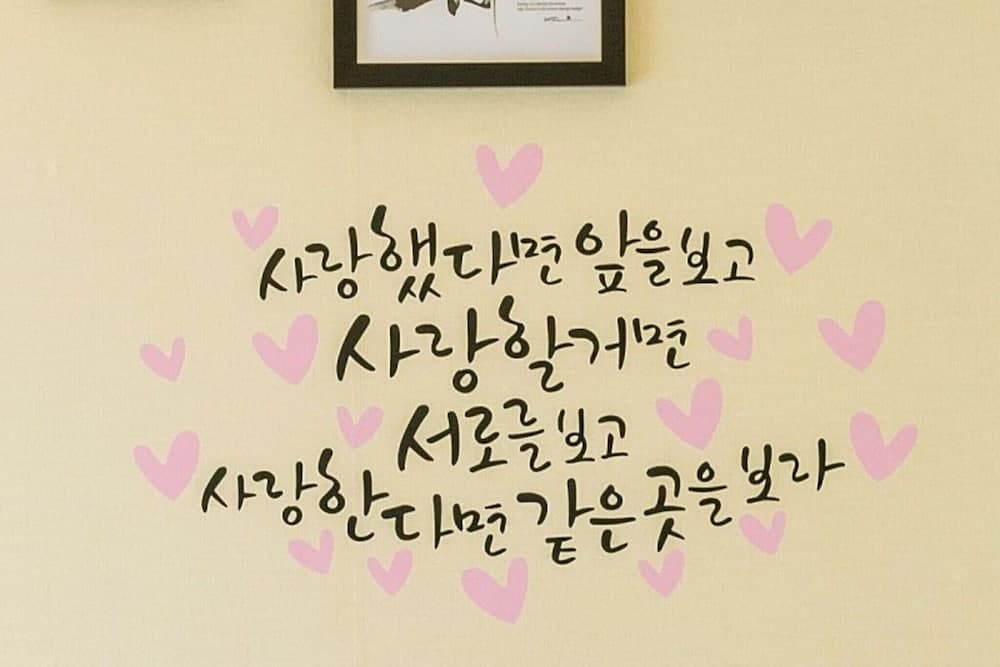 사랑했다면 앞을 보고
사랑할거면
서로를 보고
사랑한다면 같은 곳을 보라